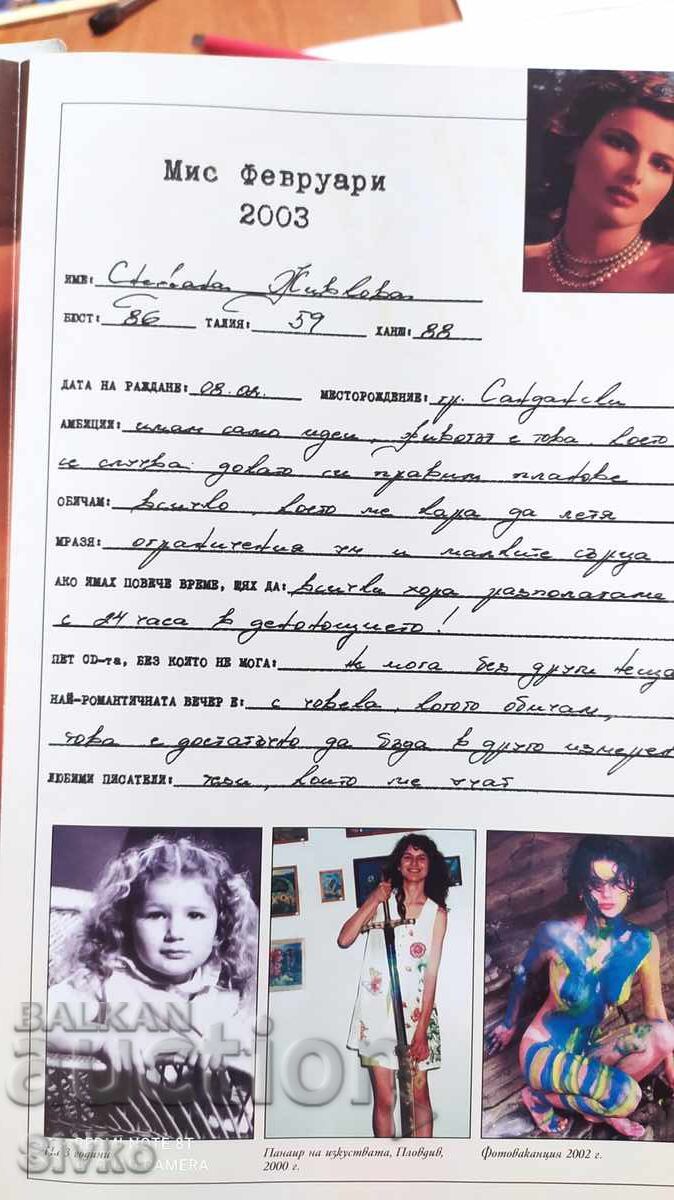 Мис Февруари
2003
ИМЕ: Стефания Живкова
БЮСТ: 86 ТАЛИЯ: 59 ХАНШ: 88
ДАТА НА РАЖДАНЕ: 08.08. МЕСТОРОЖДЕНИЕ: гр. Сандански
АМБИЦИИ: имам само идеи, животът е това, което
се случва докато си правим планове
ОБИЧАМ: всичко, което ме кара да летя
МРАЗЯ: ограничения ум и малките сърца
АКО ИМАХ ПОВЕЧЕ ВРЕМЕ, ЩЯХ ДА: всички хора разполагаме
с 24 часа в денонощието!
ПЕТ CD-та, БЕЗ КОИТО НЕ МОГА: не мога без други неща
НАЙ-РОМАНТИЧНАТА ВЕЧЕР Е: с човека, когото обичам,
това е достатъчно да бъда в друго измерен
ЛЮБИМИ ПИСАТЕЛИ: тези, които ме учат
BALKAN
auction
SIVKO
REDMI NOTE 8T
CAMERA
На 3 години
Панаир на изкуствата, Пловдив,
2000 г.
Фотоваканция 2002 г.